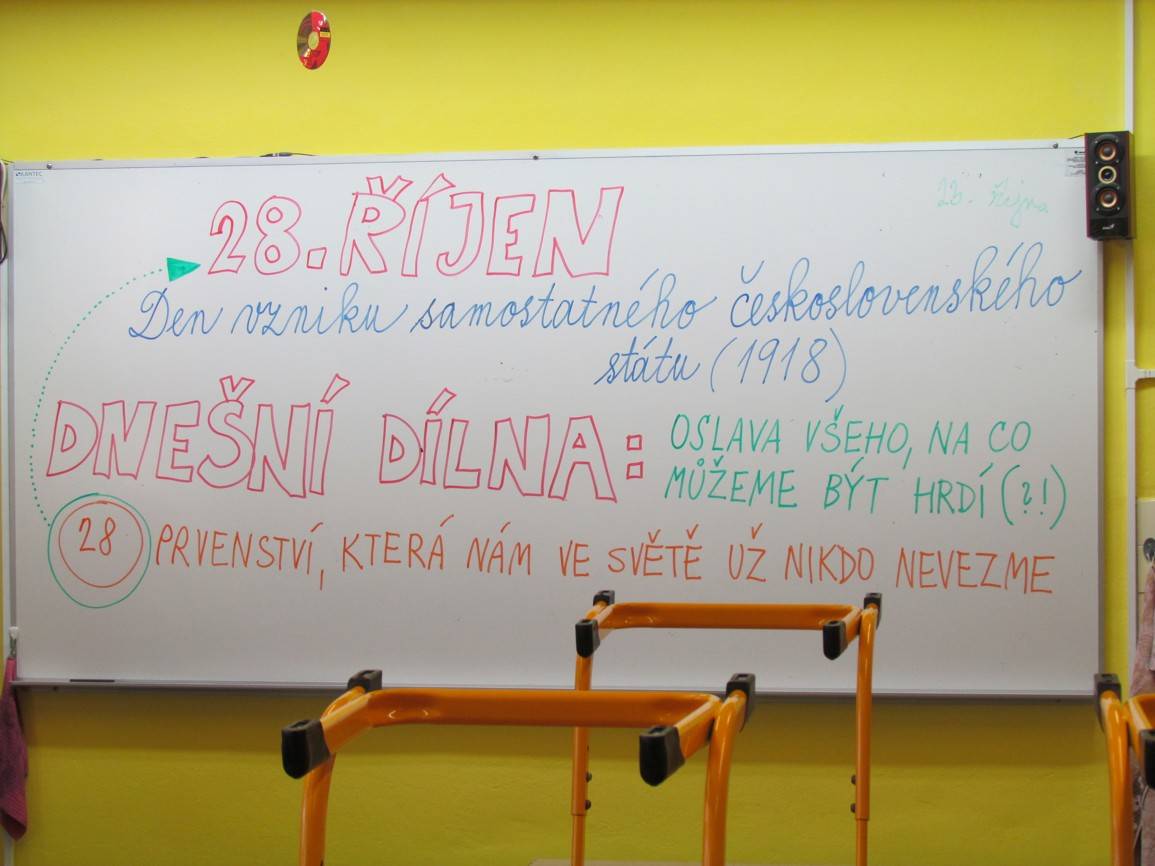 23. října
28. ŘÍJEN
Den vzniku samostatného československého
státu (1918)
DNEŠNÍ DÍLNA:
OSLAVA VŠEHO, NA CO
MŮŽEME BÝT HRDÍ (?!)
28 PRVENSTVÍ, KTERÁ NÁM VE SVĚTĚ UŽ NIKDO NEVEZME